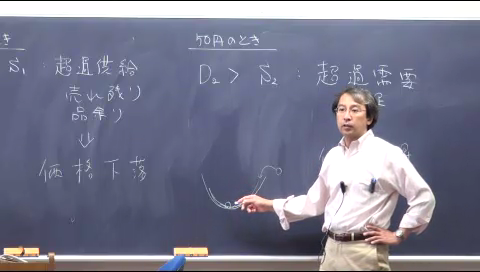 とき
S₁ : 超過供給
売れ残り
品余り
⇓
価格下落
50円のとき
D₂ > S₂ : 超過需要